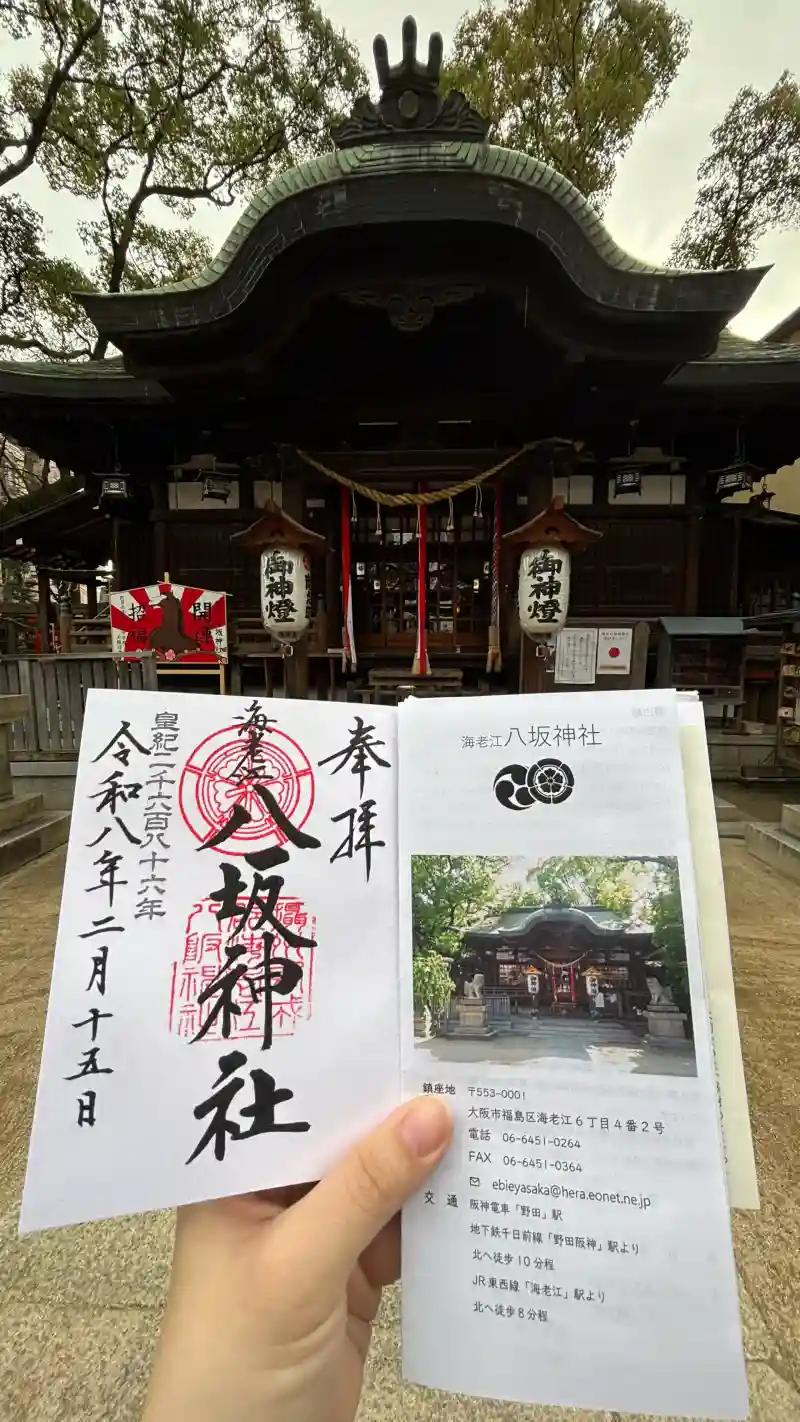 招福
開運
御神燈
御神燈
奉拝
海老江
八坂神社
皇紀二千六百八十六年
令和八年二月十五日
海老江八坂神社
鎮座地 〒553-0001
大阪市福島区海老江6丁目4番2号
電話 06-6451-0264
FAX 06-6451-0364
ebieyasaka@hera.eonet.ne.jp
交通 阪神電車「野田」駅
地下鉄千日前線「野田阪神」駅より
北へ徒歩10分程
JR東西線「海老江」駅より
北へ徒歩8分程